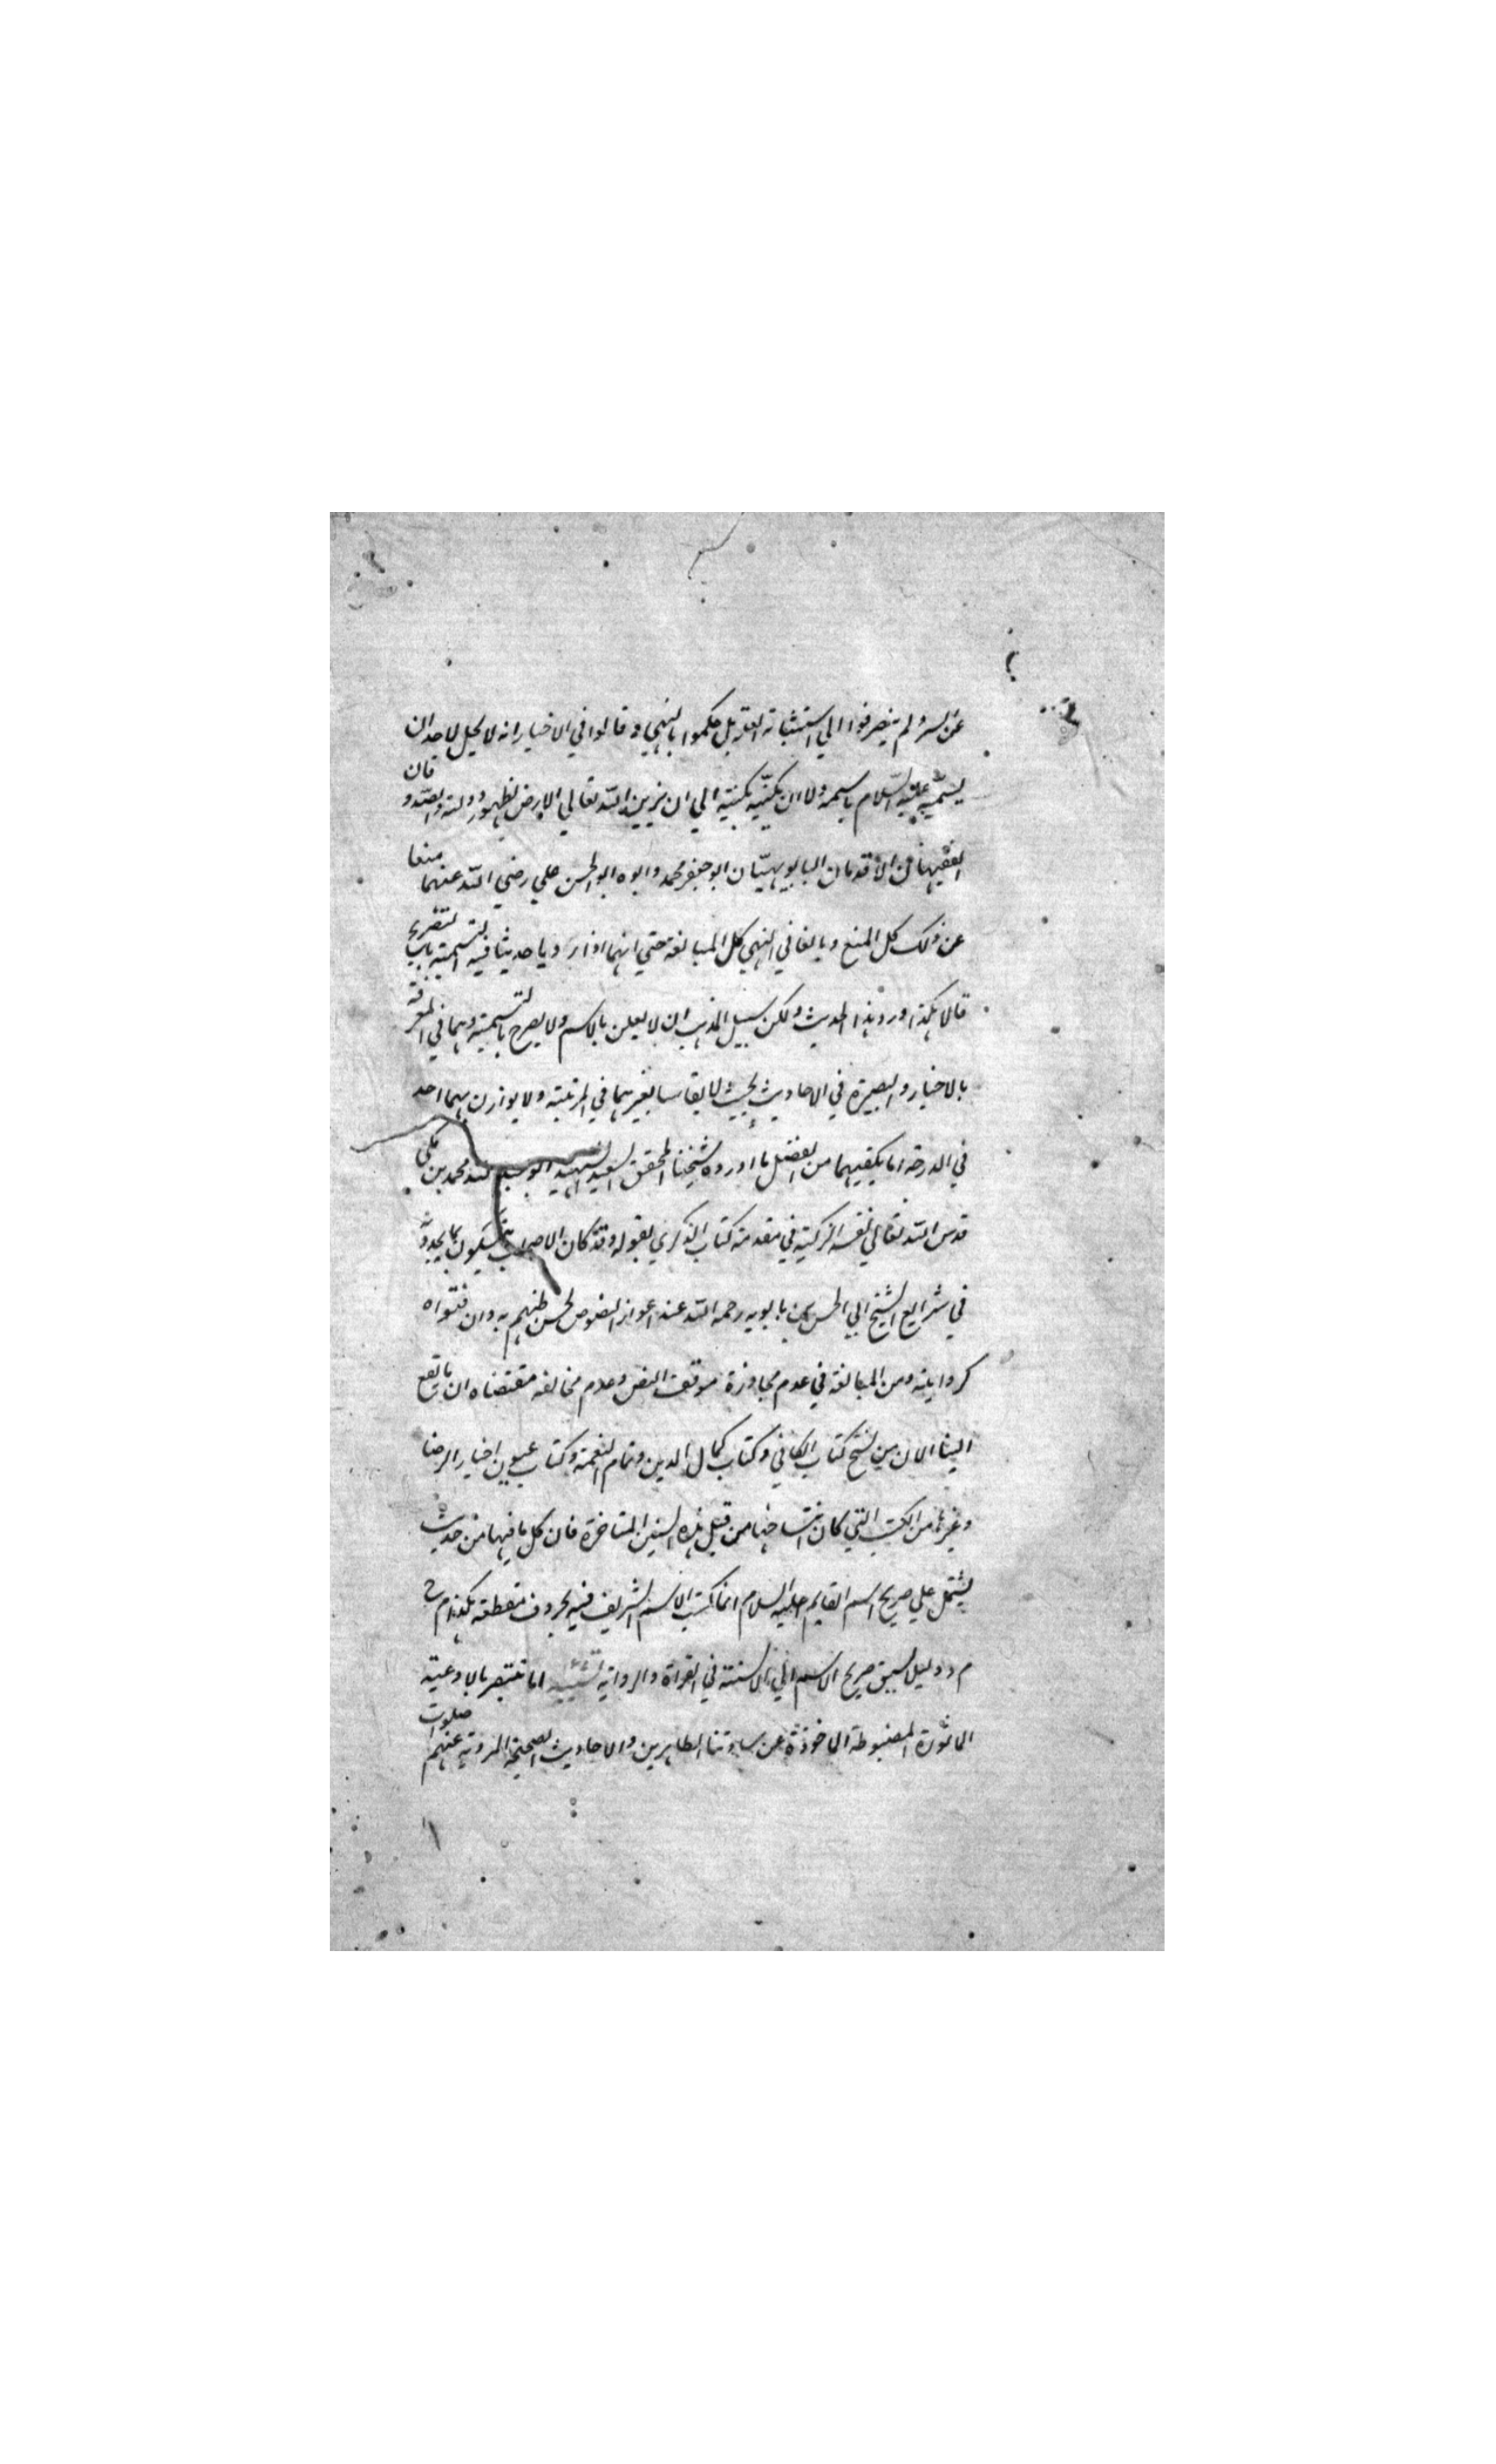 عن السر ولم ينصرفوا الي استثباته العلة بل حكموا بالنهي وقالوا في الاخبار انه لا يحل لاحد ان
يسميه عليه السلام باسمه ولا ان يكنيه بكنيته الي ان يزين الله تعالي الارض بظهور دولته والصدوقان
الفقيهان الاقدمان البابويهيان ابو جعفر محمد وابوه ابو الحسن علي رضي الله عنهما منعا
عن ذلك كل المنع وبالغا في النهي كل المبالغة حتي انهما اذا رويا حديثا فيه التصريح بالتسمية
قالا هكذا ورد هذا الحديث ولكن سبيل المذهب ان لا يعلن بالاسم ولا يصرح بالتسمية وهما في المعرفة
بالاخبار والبصيرة في الاحاديث بحيث لا يقاس بغيرهما في المرتبة ولا يوازن بهما احد
في الدرجة اما يكفيهما من الفضل ما اورده شيخنا المحقق السعيد الشهيد ابو عبد الله محمد بن مكي
قدس الله تعالي نفسه الزكية في مقدمة كتاب الذكري بقوله وقد كان الاصحاب يتمسكون بما يجدونه
في شرايع الشيخ ابي الحسن بن بابويه رحمه الله عند اعواز النصوص لحسن ظنهم به وان فتواه
كروايته ومن المبالغة في عدم مجاوزة موقف النص وعدم مخالفه مقتضاه ان ما يقع
الينا الان من نسخ كتاب الكافي وكتاب كمال الدين وتمام النعمة وكتاب عيون اخبار الرضا
وغيرها من الكتب التي كان انتساخها من قبل هذه السنين المتاخرة فان كل ما فيها من حديث
يشتمل علي صريح اسم القايم عليه السلام انما كتب الاسم الشريف فيه بحروف مقطعه هكذا م ح
م د ليلا يسبق صريح الاسم الي الالسنة في القراة والرواية اما تعتبر بالادعية
الماثورة المضبوطة الماخوذة عن ساداتنا الطاهرين والاحاديث الصحيحة المروية عنهم صلوات